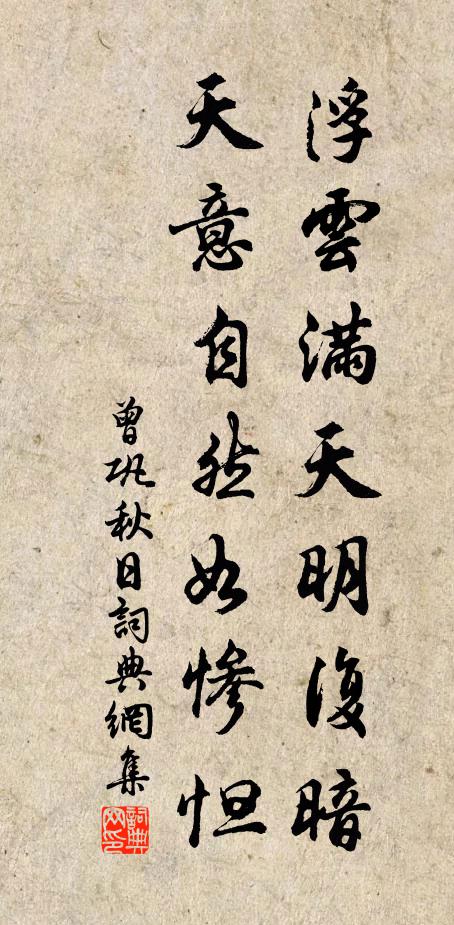 浮雲滿天明復暗
天意自然如慘怛
曾巩秋日詞典網集
詞典网印